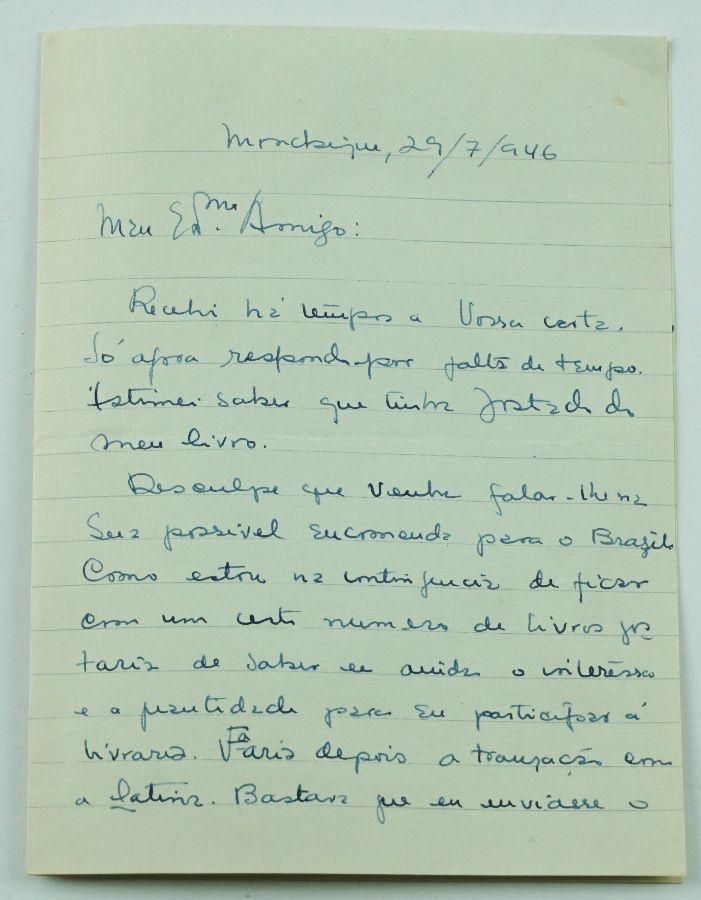 Monchique, 29/7/946
Meu Ex.mo Amigo:
Recebi há tempos a Vossa carta.
Só agora respondo por falta de tempo.
Estimei saber que tinha gostado do
meu livro.
Desculpe que venha falar-lhe na
Sua possivel encomenda para o Brazil.
Como estou na contingencia de ficar
com um certo numero de livros gos
taria de saber se ainda o interéssa
e a quantidade para eu participar á
livraria. Faria depois a tranzação com
a latina. Bastava que eu enviasse o